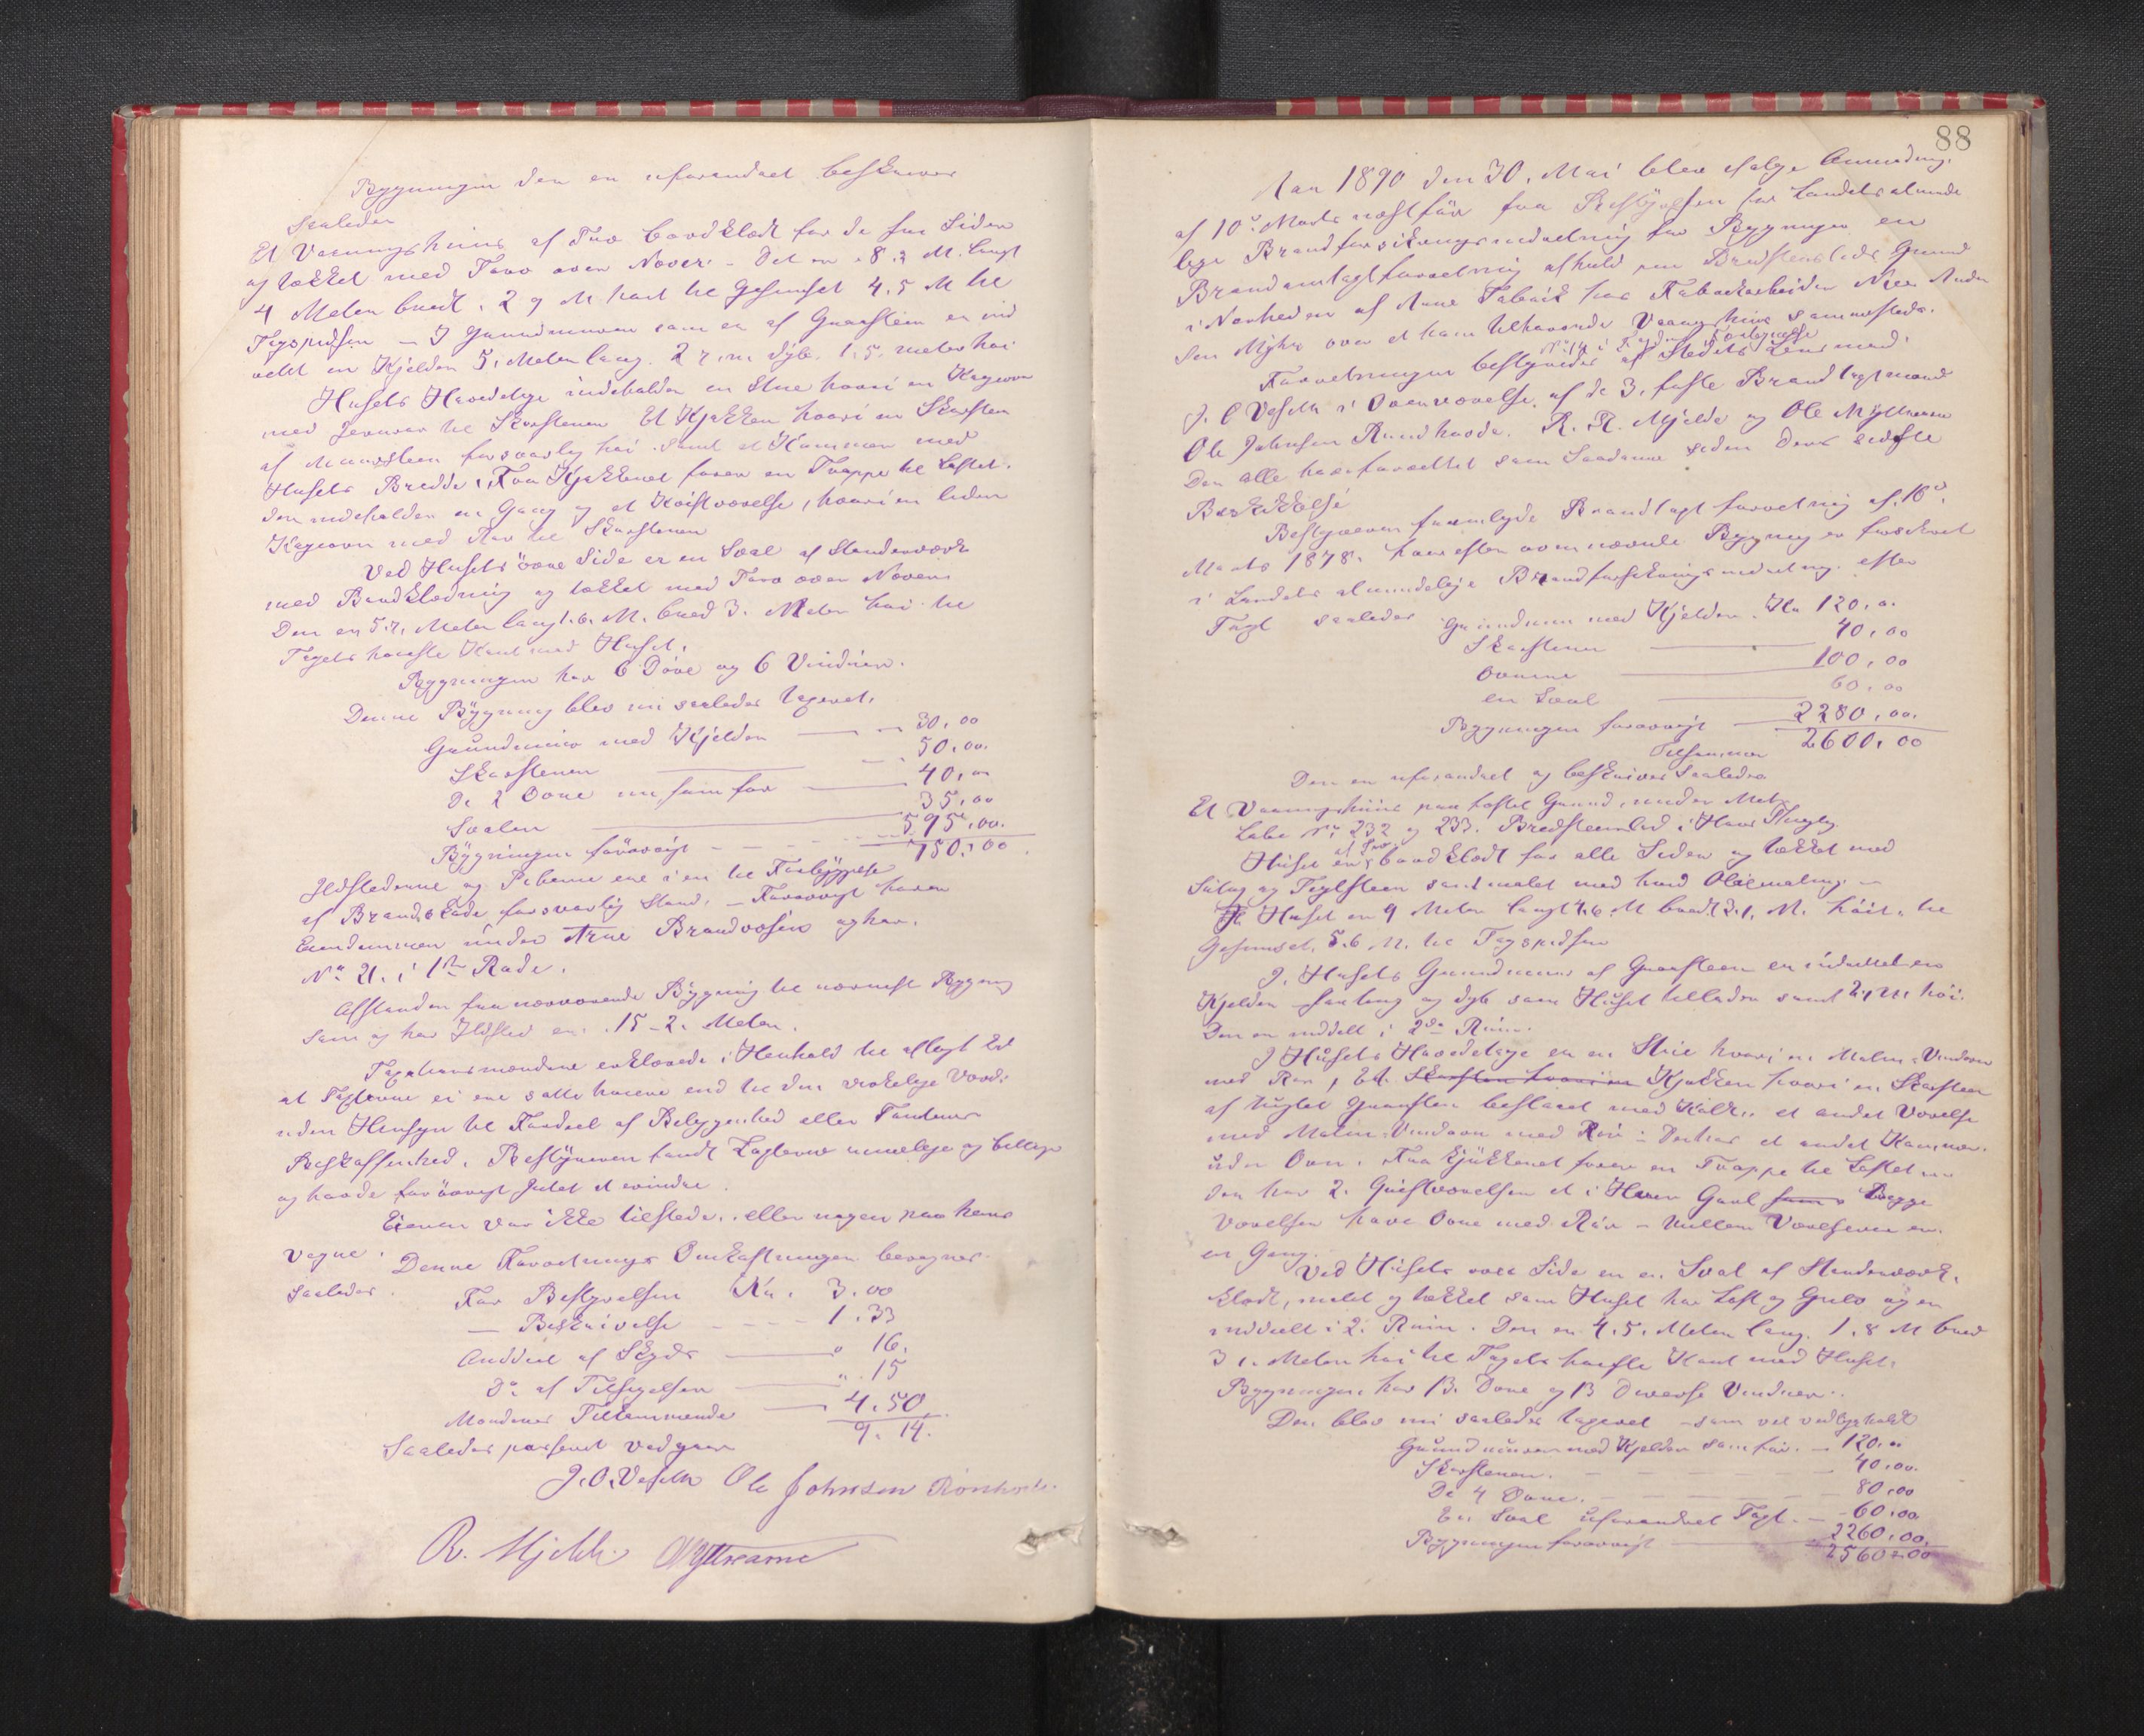 Bygningen den er uforandret beskreven
saaledes
Et Vaaningshuus af Træ bordklædt for de fire Sider
og tækket med Torv over Næver. - Det er 8.2 M. langt
4 Meter bredt, 2 9 M høit til Gesimset 4.5 M til
Tagspidsen - I Grundmuren som er af Graasteen er ind
rettet en Kjelder 5, Meter lang. 2 7. m dyb. 1.5. meter høi
Husets Hovedetage indeholder en Stue hvori en Kagovn
med Jernrør til Skorstenen Et Kjøkken hvori en Skorsten
af Muursteen forsvarlig høi. Samt et Kammer med
Husets Bredde, Fra Kjøkkenet fører en Trappe til Loftet.
den indeholder en Gang og et Kvistværelse, hvori en liden
Kagovn med Rør til Skorstenen
Ved Husets øvre Side er en Sval af Stenderværk
med Bordklædning og tækket med Torv over Næver.
Den er 5.7, Meter lang 1.6. M. bred 3. Meter høi til
Tagets høieste Kant med Huset.
Bygningen har 6 Døre og 6 Vinduer.
Denne Bygning blev nu saaledes taxeret.
Grundmuur med Kjelder — " 30,00
Skorstenen — 50,00.
De 2 Ovne nu som før — 40,00
Svalen — 35,00
Bygningen forøvrigt - - - 595,00.
750,00.
Ildstederne og Piberne ere i en til Forebyggelse
af Brandskade forsvarlig Stand. - Forøvrigt hører
Eiendommen under Arne Brandvæsen og har.
No 21. i 1ste Rode.
Afstanden fra nærværende Bygning til nærmeste Bygning
som og har Ildsted er. 15-2. Meter.
Taxationsmændene erklærede i Henhold til aflagt Ed
at Taxterne ei ere satte høiere end til den virkelige Værdi
uden Hensyn til Fordeel af Beliggenhed eller Tomtens
Beskaffenhed. Bestyreren fandt Taxterne rimelige og billige
og havde forøvrigt Intet at erindre.
Eieren var ikke tilstede. eller nogen paa hans
Vegne. Denne Forretnings Omkostninger beregnes
saaledes.
For Bestyrelsen Kr. 3.00
— Beskrivelse - - - - 1.33
Anddeel af Skyds — " 16.
Do af Tilsigelsen — " 15
Mændenes Tilkommende — 4.50.
9. 14.
Saaledes passeret vedgaaes
J.O.Veseth Ole Johnsen
R. Mjelde
88
Aar 1890 den 30. Mai blev ifølge Anmodning
af 10de Marts næstfør fra Bestyrelsen for Landets alminde
lige Brandforsikringsindretning for Bygninger en
Brandomtaxtforretning afholdt paa Bredsteensleds Grund
i Nærheden af Arne Fabrik hos Fabrikarbeider Ander
sen Myhre over et ham tilhørende Vaaningshuus sammesteds.
Forretningen bestyredes af Stedets Lensmand
J. O Veseth i Overværelse af de 3. faste Brandtaxtmænd
Ole Johnsen R. R. Mjelde og Ole
Der alle have forrettet som Saadanne siden deres sidste
Beskikkelse
Bestyreren fremlagde Brandtaxtforretning af 16de.
Marts 1878. hvorefter ovennævnte Bygning er forsikret
i Landets almindelige Brandforsikringsindretning efter
Taxt saaledes Grundmuur med Kjelder. Kr 120,00.
Skorstenen — 40,00
Ovnene — 100,00
en Sval — 60,00
Bygningen forøvrigt — 2280,00.
Tilsammen 2600,00
Den er uforandret og beskrives saaledes
Et Vaaningshuus paa fæstet Grund, under Matr.
Løbe No 232 og 233. Bredsteensled i Haus Thinglag.
Huset er af Træ bordklædt for alle Sider og tækket med
Sutag og Teglsteen samt malet med hvid Oliemaling. —
Huset er 9 Meter langt 7.6. M bredt 3.1. M. høit til
Gesimset. 5.6 M. til Tagspidsen
I Husets Grundmuur af Graasteen er indrettet en
Kjelder saa lang og dyb som Huset tillader samt 2,1 M. høi.
Den er inddelt i 2de Rum.
I Husets Hovedetage er en Stue hvori en Malm Vindovn
med Rør, Et. Skorsten hvori en Kjøkken hvori en Skorsten
af hugget Graasteen beslaaet med Kalk, et andet Værelse
med Malm Vindovn med Rør - Desuden et andet Kammer.
uden Ovn. Fra Kjøkkenet fører en Trappe til Loftet
den har 2. Qvistværelser et i Hver Gavl Begge
Værelser have Ovne med Rør - Mellem Værelserne er.
en Gang.
Ved Husets øvre Side er en Sval af Stenderværk,
klædt, malet og tækket som Huset har Loft og Gulv og er
inddeelt i 2. Rum. Den er 4.5. Meter lang. 1.8 M bred
3 1. Meter høi til Tagets høieste Kant med Huset.
Bygningen har 13. Døre og 13 diverse Vinduer.
Den blev nu saaledes taxeret - som vel vedligeholdt
Grundmuren med Kjelder som før. — 120,00
Skorstenen. - - - 40,00.
De 4 Ovne. - - - 80,00
En Sval uforandret Taxt. — 60,00
Bygningen forøvrigt — 2260,00.
2560,00